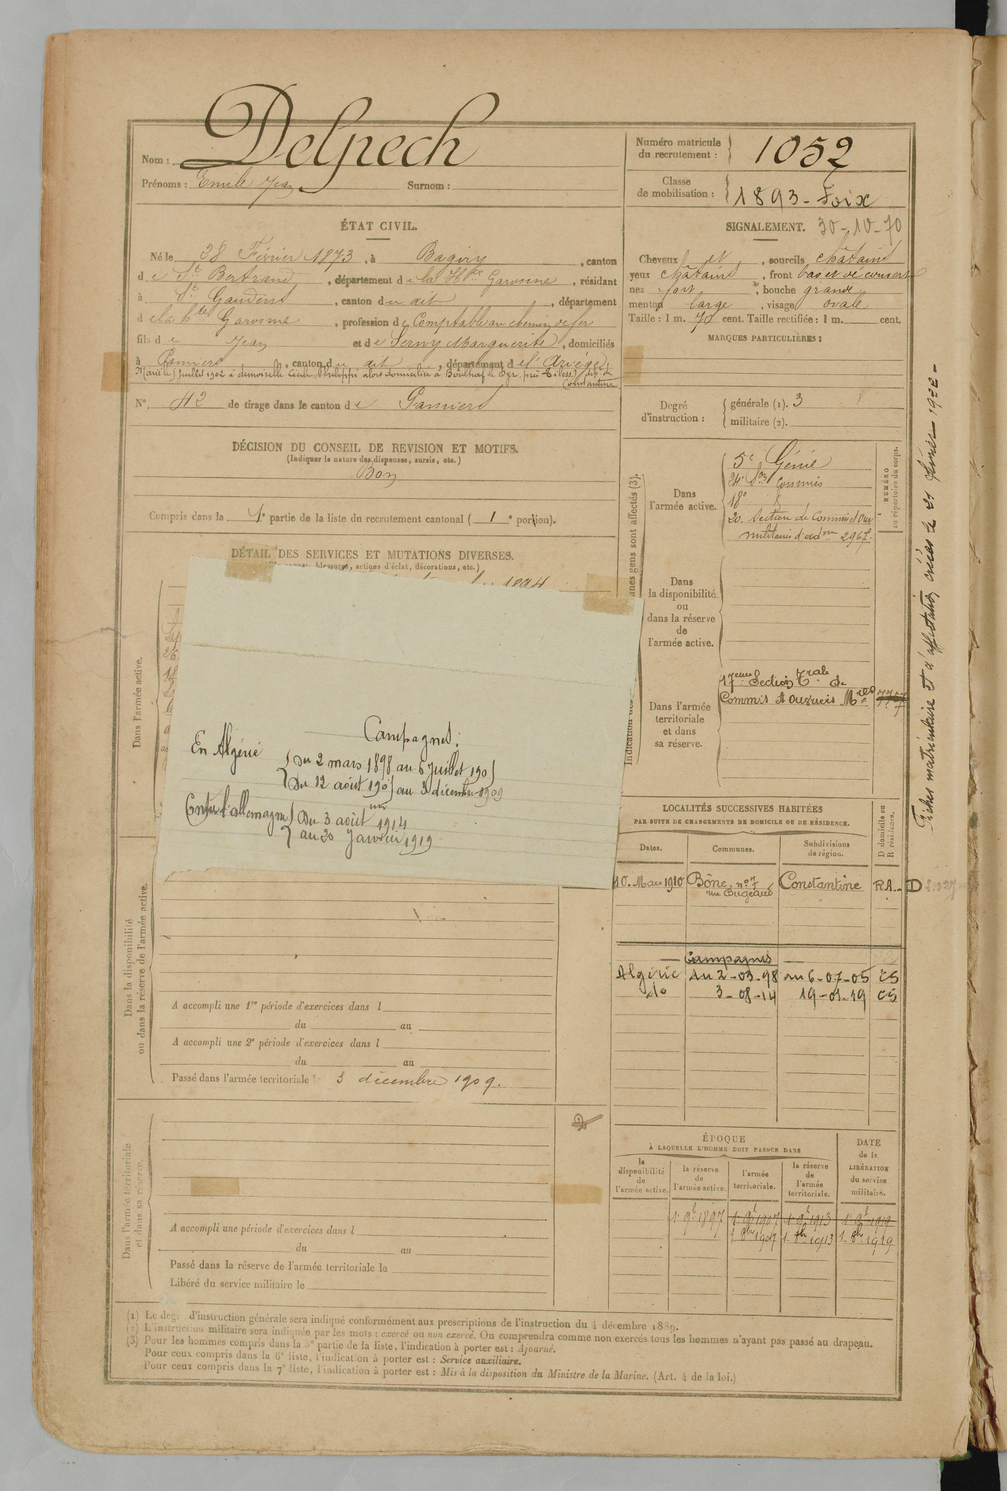 Nom : Delpech
Prénoms : Emile Jean Surnom :
Numéro matricule du recrutement : 1052
Classe de mobilisation : 1893 - Foix
ÉTAT CIVIL.
Né le 28 Février 1873, à Bagiry, canton
de St Bertrand, département de la Hte Garonne, résidant
à St Gaudens, canton du dit, département
de la hte Garonne, profession de Comptable au chemin de fer
fils de Jean et de Serny Marguerite, domiciliés
à Pamiers, canton du dit, département de l'Ariège
No 42 de tirage dans le canton de Pamiers
SIGNALEMENT. 30-10-70
Cheveux et, sourcils châtains
yeux châtains, front bas et découvert
nez fort, bouche grande
menton large, visage ovale
Taille : 1 m. 70 cent. Taille rectifiée : 1 m. cent.
MARQUES PARTICULIÈRES :
Degré d'instruction : générale (1). 3
militaire (2).
DÉCISION DU CONSEIL DE REVISION ET MOTIFS.
(Indiquer la nature des dispenses, sursis, etc.)
Bon
Compris dans la 1e partie de la liste du recrutement cantonal ( 1e portion).
DÉTAIL DES SERVICES ET MUTATIONS DIVERSES.
actions d'éclat, décorations, etc.)
1894
Dans l'armée active.
Campagnes :
En Algérie
du 2 mars 1898 au 6 Juillet 190
du 12 août 190 au 3 décembre 1909
Contre l'allemagne
Du 3 août 1914
au 20 Janvier 1919
NUMÉRO au répertoire du corps.
Dans l'armée active.
5e Génie
18e
20 Section de Commis et Ouv
militaire d'adon 2967
Dans la disponibilité ou dans la réserve de l'armée active.
Dans l'armée territoriale et dans sa réserve.
17eme Section Trale de
Commis et ouvriers Mres
Fiches matriculaire et d'affectation créées le 21 février 1922 -
LOCALITÉS SUCCESSIVES HABITÉES
PAR SUITE DE CHANGEMENTS DE DOMICILE OU DE RÉSIDENCE.
Dates. Communes. Subdivisions de région. D domicile ou R résidence.
10. Mars 1910 Bône, no 7 rue Bugeaud Constantine R.A. D
Campagnes
Algérie du 2-03-98 au 6-07-05 CS
do 3-08-14 19-01-19 CS
Dans la disponibilité ou dans la réserve de l'armée active.
A accompli une 1re période d'exercices dans l
du au
A accompli une 2e période d'exercices dans l
du au
Passé dans l'armée territoriale l 3 décembre 1909.
Dans l'armée territoriale et dans sa réserve.
A accompli une période d'exercices dans l
du au
Passé dans la réserve de l'armée territoriale le
Libéré du service militaire le
ÉPOQUE
À LAQUELLE L'HOMME DOIT PASSER DANS
DATE de la LIBÉRATION du service militaire.
la disponibilité de l'armée active. la réserve de l'armée active. l'armée territoriale. la réserve de l'armée territoriale.
1 9e 1897 1 9e 1907 1 9e 1913 1 9e 1919
1 8bre 1907 1 8bre 1913 1 8bre 1919
(1) Le degré d'instruction générale sera indiqué conformément aux prescriptions de l'instruction du 4 décembre 1889.
(2) L'instruction militaire sera indiquée par les mots : exercé ou non exercé. On comprendra comme non exercés tous les hommes n'ayant pas passé au drapeau.
(3) Pour les hommes compris dans la 5e partie de la liste, l'indication à porter est : Ajourné.
Pour ceux compris dans la 6e liste, l'indication à porter est : Service auxiliaire.
Pour ceux compris dans la 7e liste, l'indication à porter est : Mis à la disposition du Ministre de la Marine. (Art. 4 de la loi.)